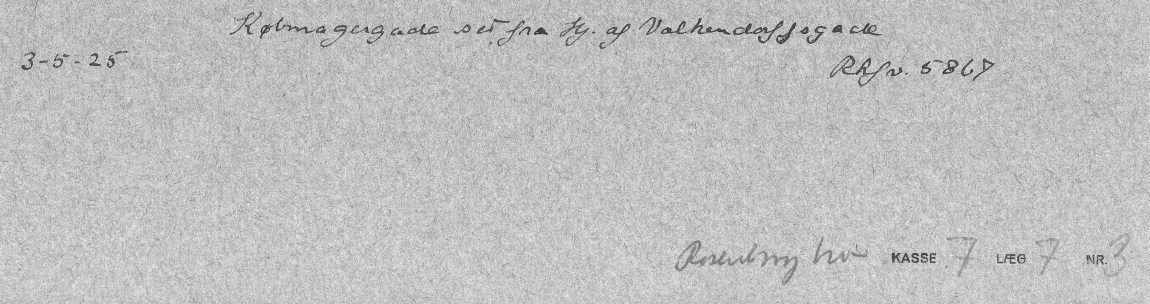 Købmagergade set fra Hj. af Valkendorfsgade
3-5-25
Rhfv. 5867
Rosenborg kv KASSE 7 LÆG 7 NR. 3